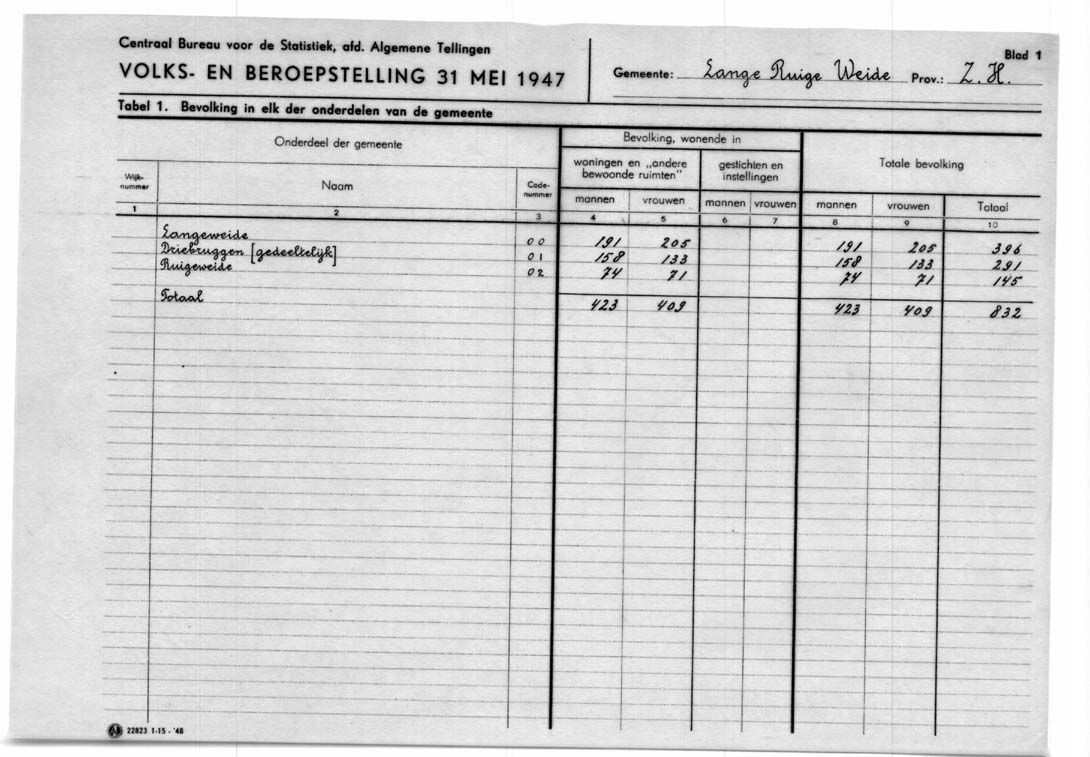 Centraal Bureau voor de Statistiek, afd. Algemene Tellingen
VOLKS- EN BEROEPSTELLING 31 MEI 1947
Gemeente: Lange Ruige Weide Prov.: Z. H.
Blad 1
Tabel 1. Bevolking in elk der onderdelen van de gemeente
Onderdeel der gemeente
Bevolking, wonende in
Totale bevolking
woningen en „andere bewoonde ruimten"
gestichten en instellingen
Wijk-nummer Naam Code-nummer mannen vrouwen mannen vrouwen mannen vrouwen Totaal
1 2 3 4 5 6 7 8 9 10
Langeweide 00 191 205 191 205 396
Driebruggen [gedeeltelijk] 01 158 133 158 133 291
Ruigeweide 02 74 71 74 71 145
Totaal 423 409 423 409 832
22823 1-15 - '48